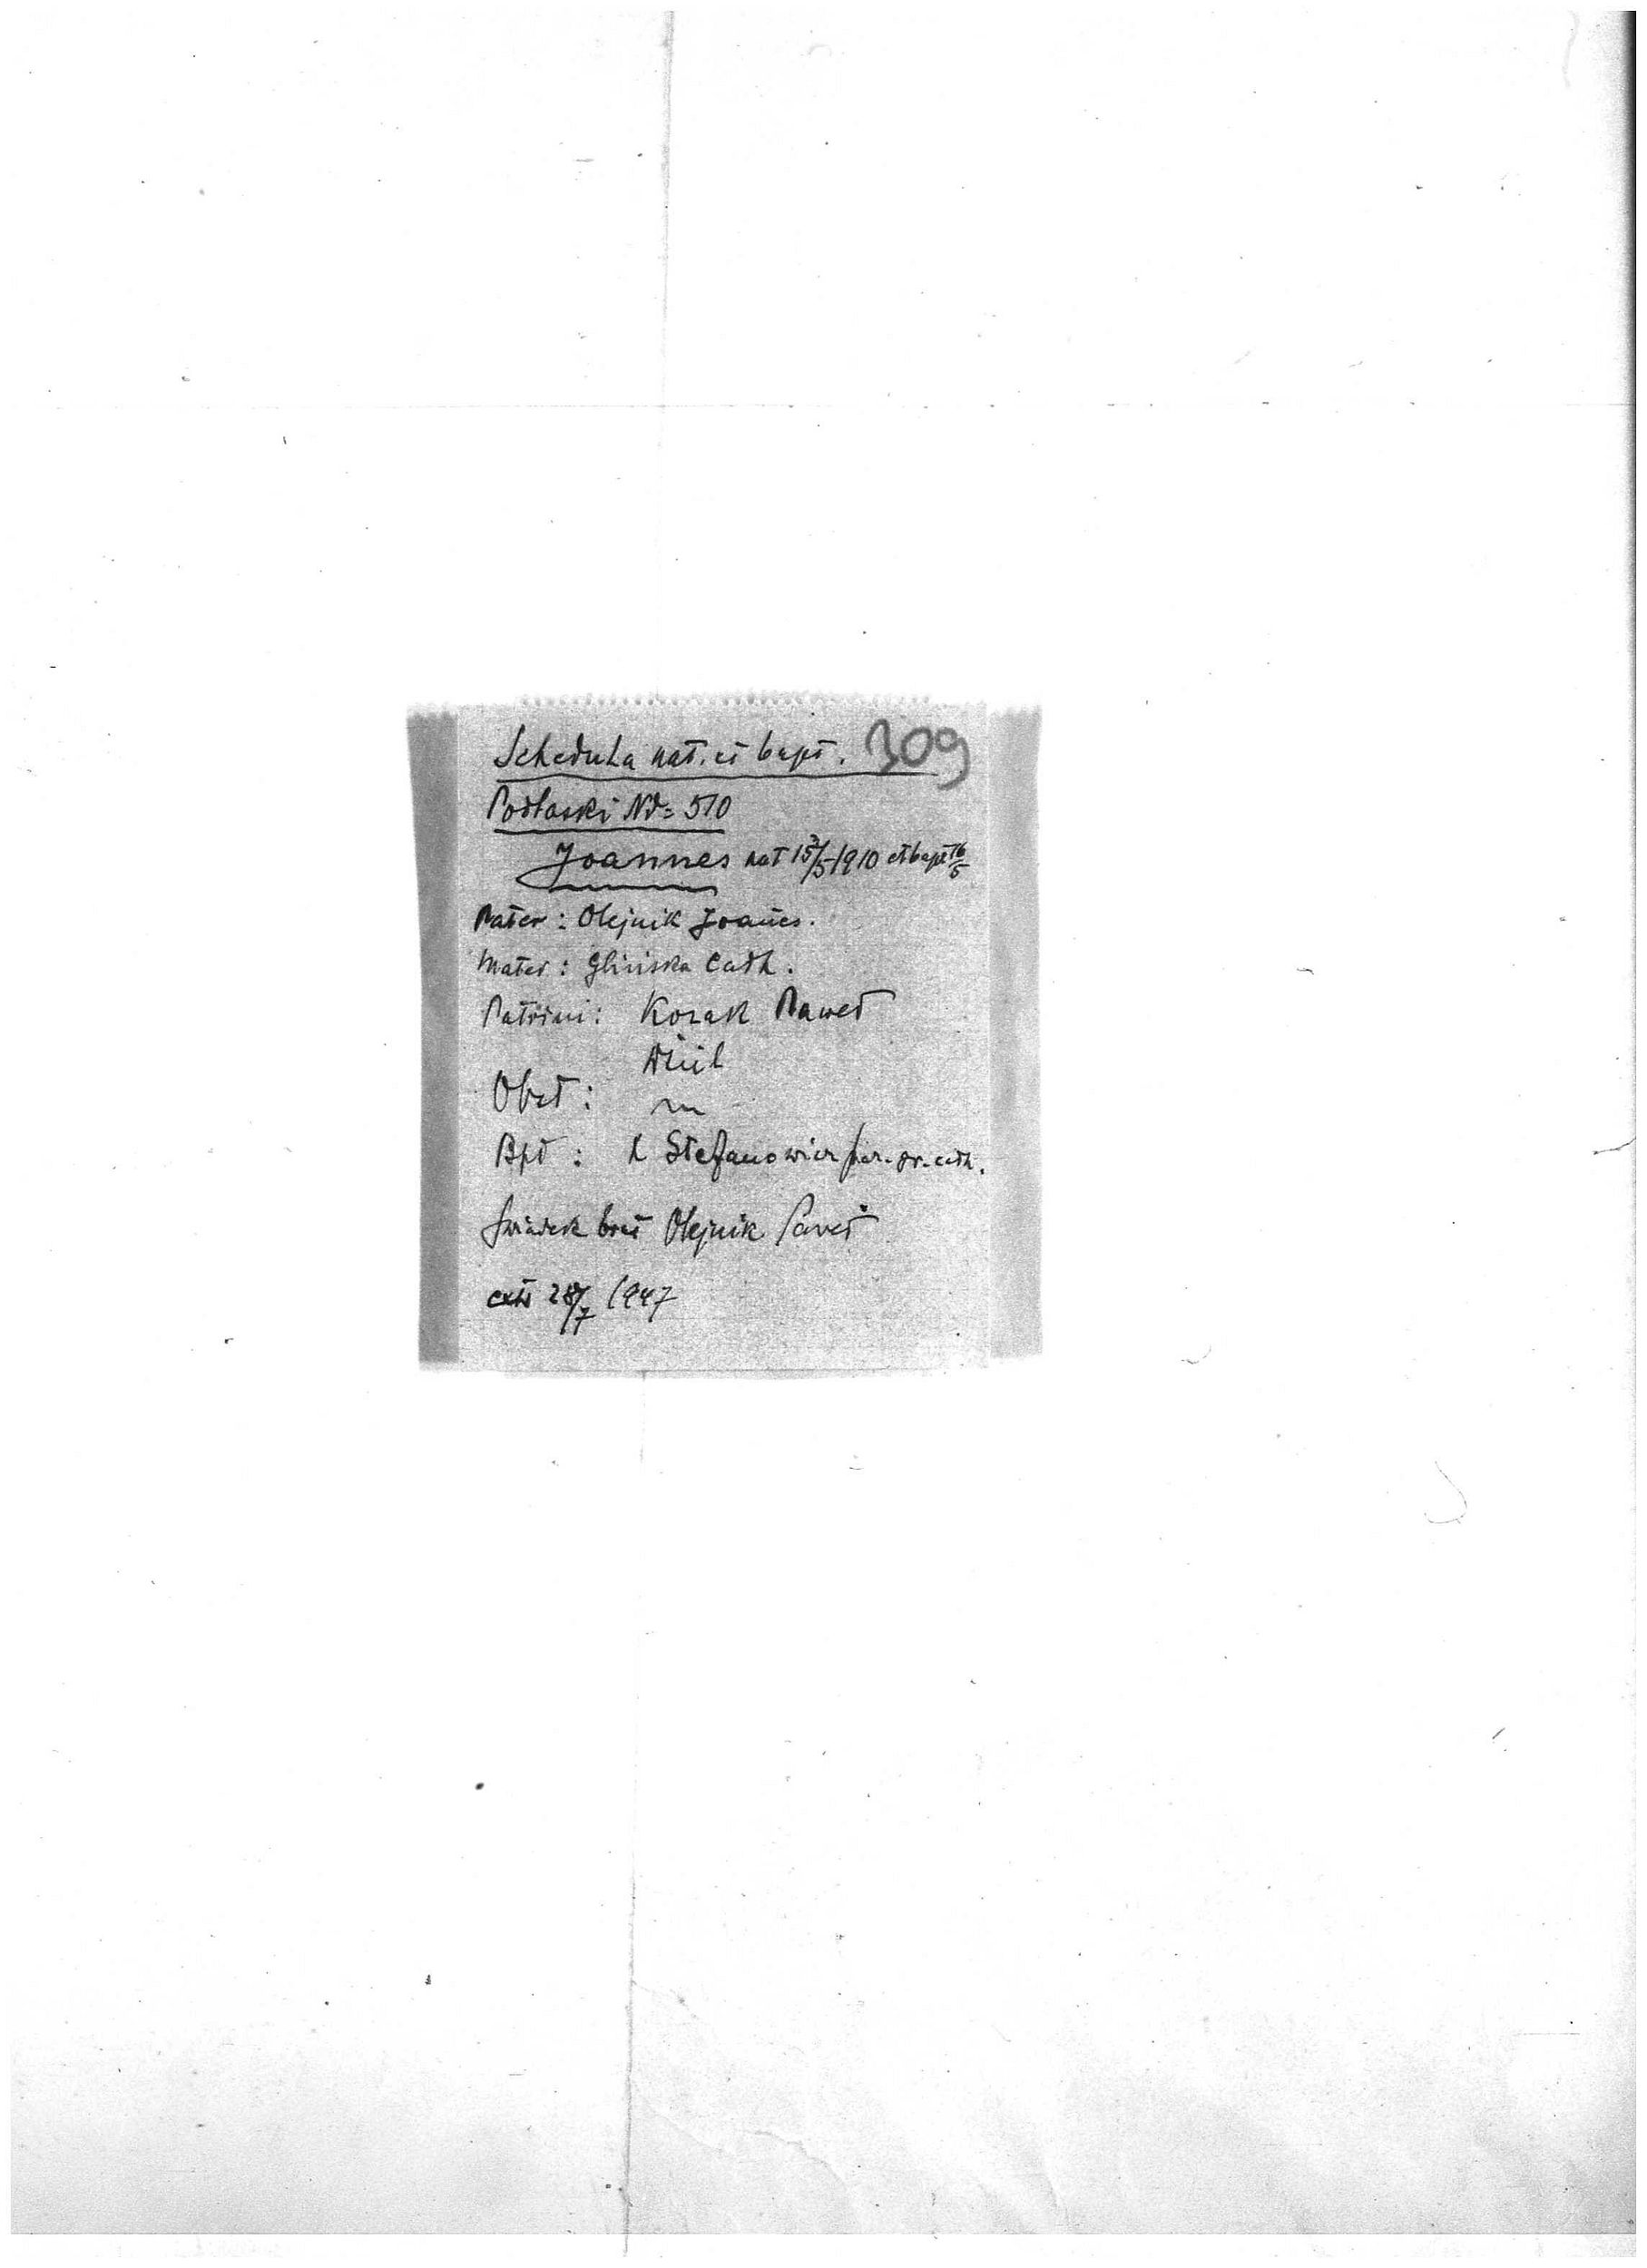 Schedula nat. et bapt. 309
Podłaski Nd= 510
Joannes nat 15/5 1910 et bapt 16/5
Pater: Olejnik Joanes.
Mater: Glińska Cath.
Patrini: Kozak Paweł
Obst:
Bpt: Stefanowicz par. gr. cath.
Świadek brat Olejnik Paweł
28/7 1947